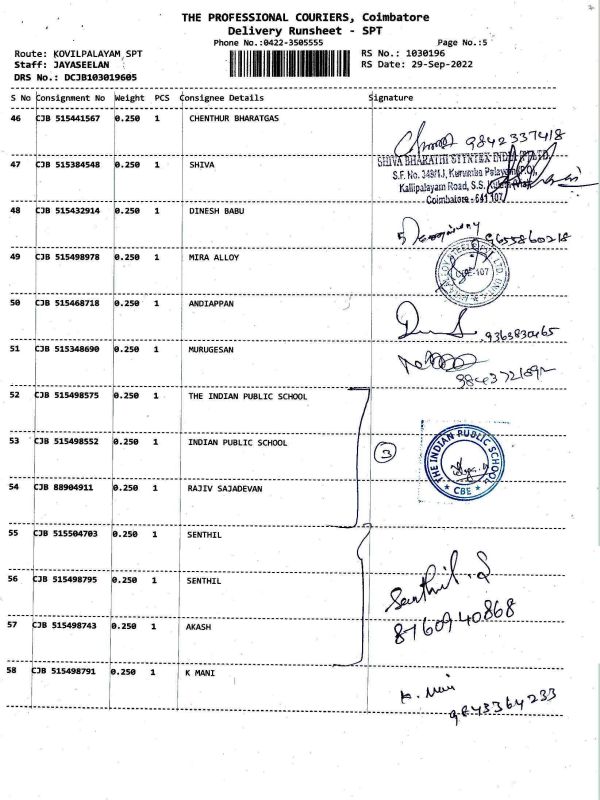 THE PROFESSIONAL COURIERS, Coimbatore
Delivery Runsheet - SPT
Phone No.:0422-3505555 Page No.:5
Route: KOVILPALAYAM SPT RS No.: 1030196
Staff: JAYASEELAN RS Date: 29-Sep-2022
DRS No.: DCJB103019605
S No Consignment No Weight PCS Consignee Details Signature
46 CJB 515441567 0.250 1 CHENTHUR BHARATGAS
9842337418
47 CJB 515384548 0.250 1 SHIVA
SHIVA BHARATHI SYNTEX INDIA (P) LTD.
S.F. No. 349/1.I, Kurumba Palayam (P.O),
Kallipalayam Road, S.S. Kulam (Via),
Coimbatore - 641 107.
48 CJB 515432914 0.250 1 DINESH BABU
9655860218
49 CJB 515498978 0.250 1 MIRA ALLOY
CBE-107
50 CJB 515468718 0.250 1 ANDIAPPAN
9363830465
51 CJB 515348690 0.250 1 MURUGESAN
52 CJB 515498575 0.250 1 THE INDIAN PUBLIC SCHOOL
53 CJB 515498552 0.250 1 INDIAN PUBLIC SCHOOL
3
THE INDIAN PUBLIC SCHOOL
* CBE *
54 CJB 88904911 0.250 1 RAJIV SAJADEVAN
55 CJB 515504703 0.250 1 SENTHIL
56 CJB 515498795 0.250 1 SENTHIL
Senthil. S
57 CJB 515498743 0.250 1 AKASH
8760940868
58 CJB 515498791 0.250 1 K MANI
K. Mani
9843364233